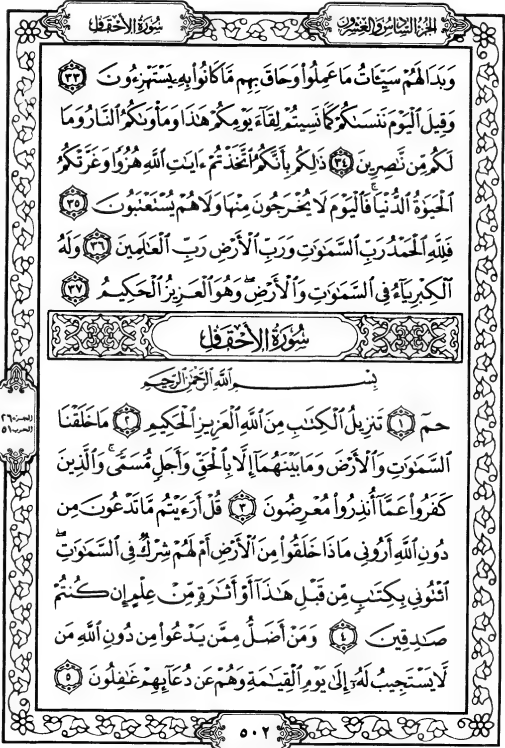 سُورَةُ الأَحْقَافِ
الجُزْءُ السَّادِسُ وَالعِشْرُونَ
وَبَدَا لَهُمْ سَيِّـَٔاتُ مَا عَمِلُوا۟ وَحَاقَ بِهِم مَّا كَانُوا۟ بِهِۦ يَسْتَهْزِءُونَ ٣٣
وَقِيلَ ٱلْيَوْمَ نَنسَىٰكُمْ كَمَا نَسِيتُمْ لِقَآءَ يَوْمِكُمْ هَٰذَا وَمَأْوَىٰكُمُ ٱلنَّارُ وَمَا
لَكُم مِّن نَّٰصِرِينَ ٣٤ ذَٰلِكُم بِأَنَّكُمُ ٱتَّخَذْتُمْ ءَايَٰتِ ٱللَّهِ هُزُوًا وَغَرَّتْكُمُ
ٱلْحَيَوٰةُ ٱلدُّنْيَا ۚ فَٱلْيَوْمَ لَا يُخْرَجُونَ مِنْهَا وَلَا هُمْ يُسْتَعْتَبُونَ ٣٥
فَلِلَّهِ ٱلْحَمْدُ رَبِّ ٱلسَّمَٰوَٰتِ وَرَبِّ ٱلْأَرْضِ رَبِّ ٱلْعَٰلَمِينَ ٣٦ وَلَهُ
ٱلْكِبْرِيَآءُ فِى ٱلسَّمَٰوَٰتِ وَٱلْأَرْضِ ۖ وَهُوَ ٱلْعَزِيزُ ٱلْحَكِيمُ ٣٧
سُورَةُ الأَحْقَافِ
بِسْمِ ٱللَّهِ ٱلرَّحْمَٰنِ ٱلرَّحِيمِ
حمٓ ١ تَنزِيلُ ٱلْكِتَٰبِ مِنَ ٱللَّهِ ٱلْعَزِيزِ ٱلْحَكِيمِ ٢ مَا خَلَقْنَا
ٱلسَّمَٰوَٰتِ وَٱلْأَرْضَ وَمَا بَيْنَهُمَآ إِلَّا بِٱلْحَقِّ وَأَجَلٍ مُّسَمًّى ۚ وَٱلَّذِينَ
كَفَرُوا۟ عَمَّآ أُنذِرُوا۟ مُعْرِضُونَ ٣ قُلْ أَرَءَيْتُم مَّا تَدْعُونَ مِن
دُونِ ٱللَّهِ أَرُونِى مَاذَا خَلَقُوا۟ مِنَ ٱلْأَرْضِ أَمْ لَهُمْ شِرْكٌ فِى ٱلسَّمَٰوَٰتِ ۖ
ٱئْتُونِى بِكِتَٰبٍ مِّن قَبْلِ هَٰذَآ أَوْ أَثَٰرَةٍ مِّنْ عِلْمٍ إِن كُنتُمْ
صَٰدِقِينَ ٤ وَمَنْ أَضَلُّ مِمَّن يَدْعُوا۟ مِن دُونِ ٱللَّهِ مَن
لَّا يَسْتَجِيبُ لَهُۥٓ إِلَىٰ يَوْمِ ٱلْقِيَٰمَةِ وَهُمْ عَن دُعَآئِهِمْ غَٰفِلُونَ ٥
الجزء ٢٦
الحزب ٥١
٥٠٢